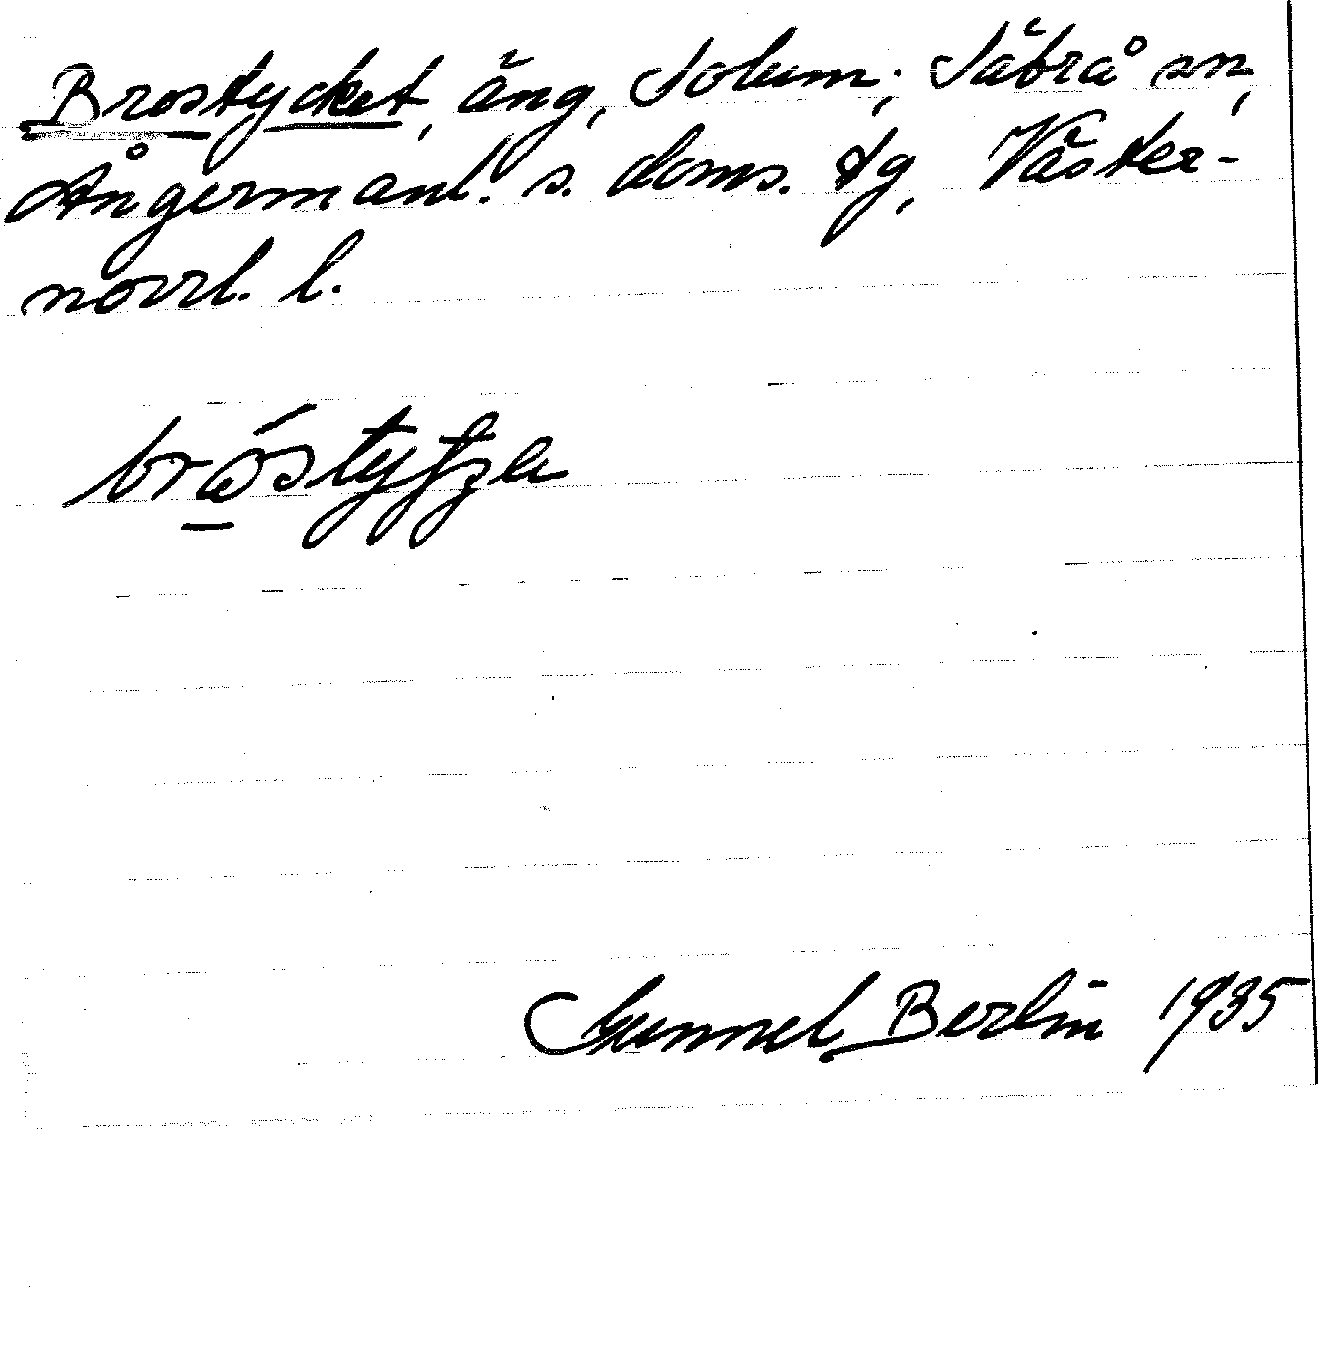 Brostycket, äng, Solum, Säbrå sn,
Ångermanl. s. doms. tg, Väster-
norrl. l.
Gunnel Berlin 1935